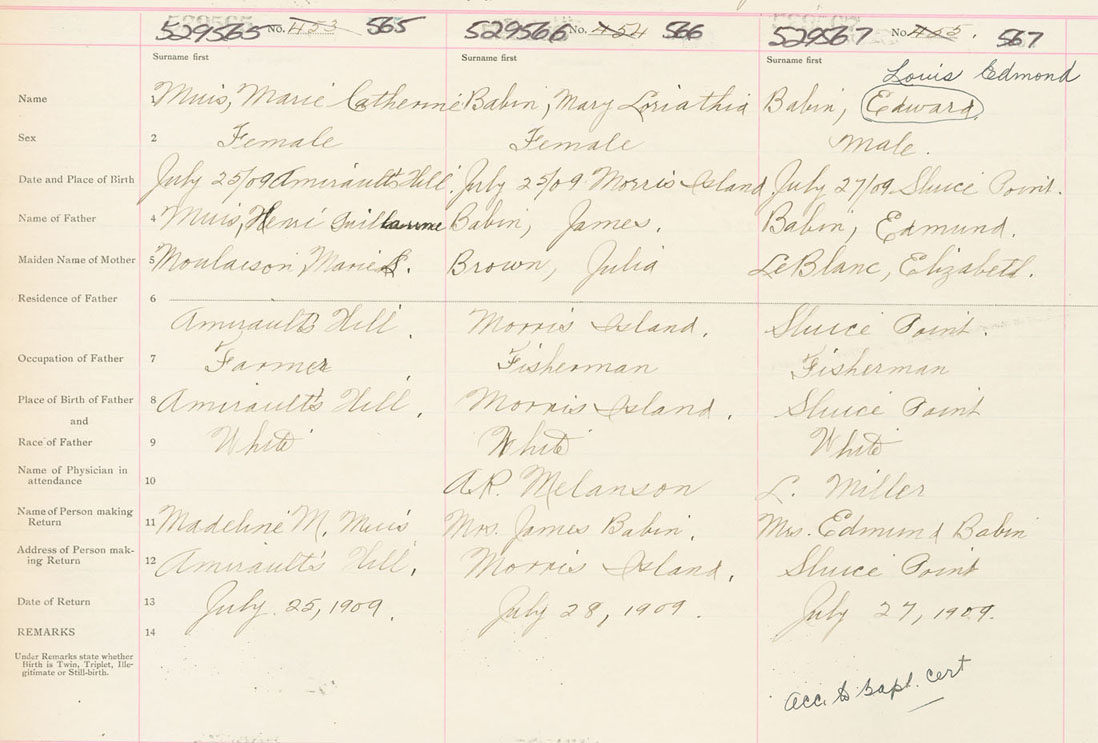 529565 No. 453 565 529566 No. 454 566 529567 No. 455. 567
Surname first Surname first Surname first
Louis Edmond
Name 1 Muis, Marie Catherine Babin, Mary Loriathia Babin, Edward.
Sex 2 Female Female Male.
Date and Place of Birth July 25/09 Amirault's Hill. July 25/09 Morris Island. July 27/09 Sluice Point.
Name of Father 4 Muis, Henri Guillaume Babin, James. Babin, Edmund.
Maiden Name of Mother 5 Moulaison, Marie S. Brown, Julia LeBlanc, Elizabeth.
Residence of Father 6
Amirault's Hill. Morris Island. Sluice Point.
Occupation of Father 7 Farmer Fisherman Fisherman
Place of Birth of Father 8 Amirault's Hill. Morris Island. Sluice Point
and
Race of Father 9 White White White
Name of Physician in
attendance 10 A.R. Melanson L. Miller
Name of Person making
Return 11 Madeline M. Muis Mrs. James Babin. Mrs. Edmund Babin
Address of Person mak-
ing Return 12 Amirault's Hill. Morris Island. Sluice Point
Date of Return 13 July 25, 1909. July 28, 1909. July 27, 1909.
REMARKS 14
Under Remarks state whether
Birth is Twin, Triplet, Ille-
gitimate or Still-birth.
acc. to Bapt. cert